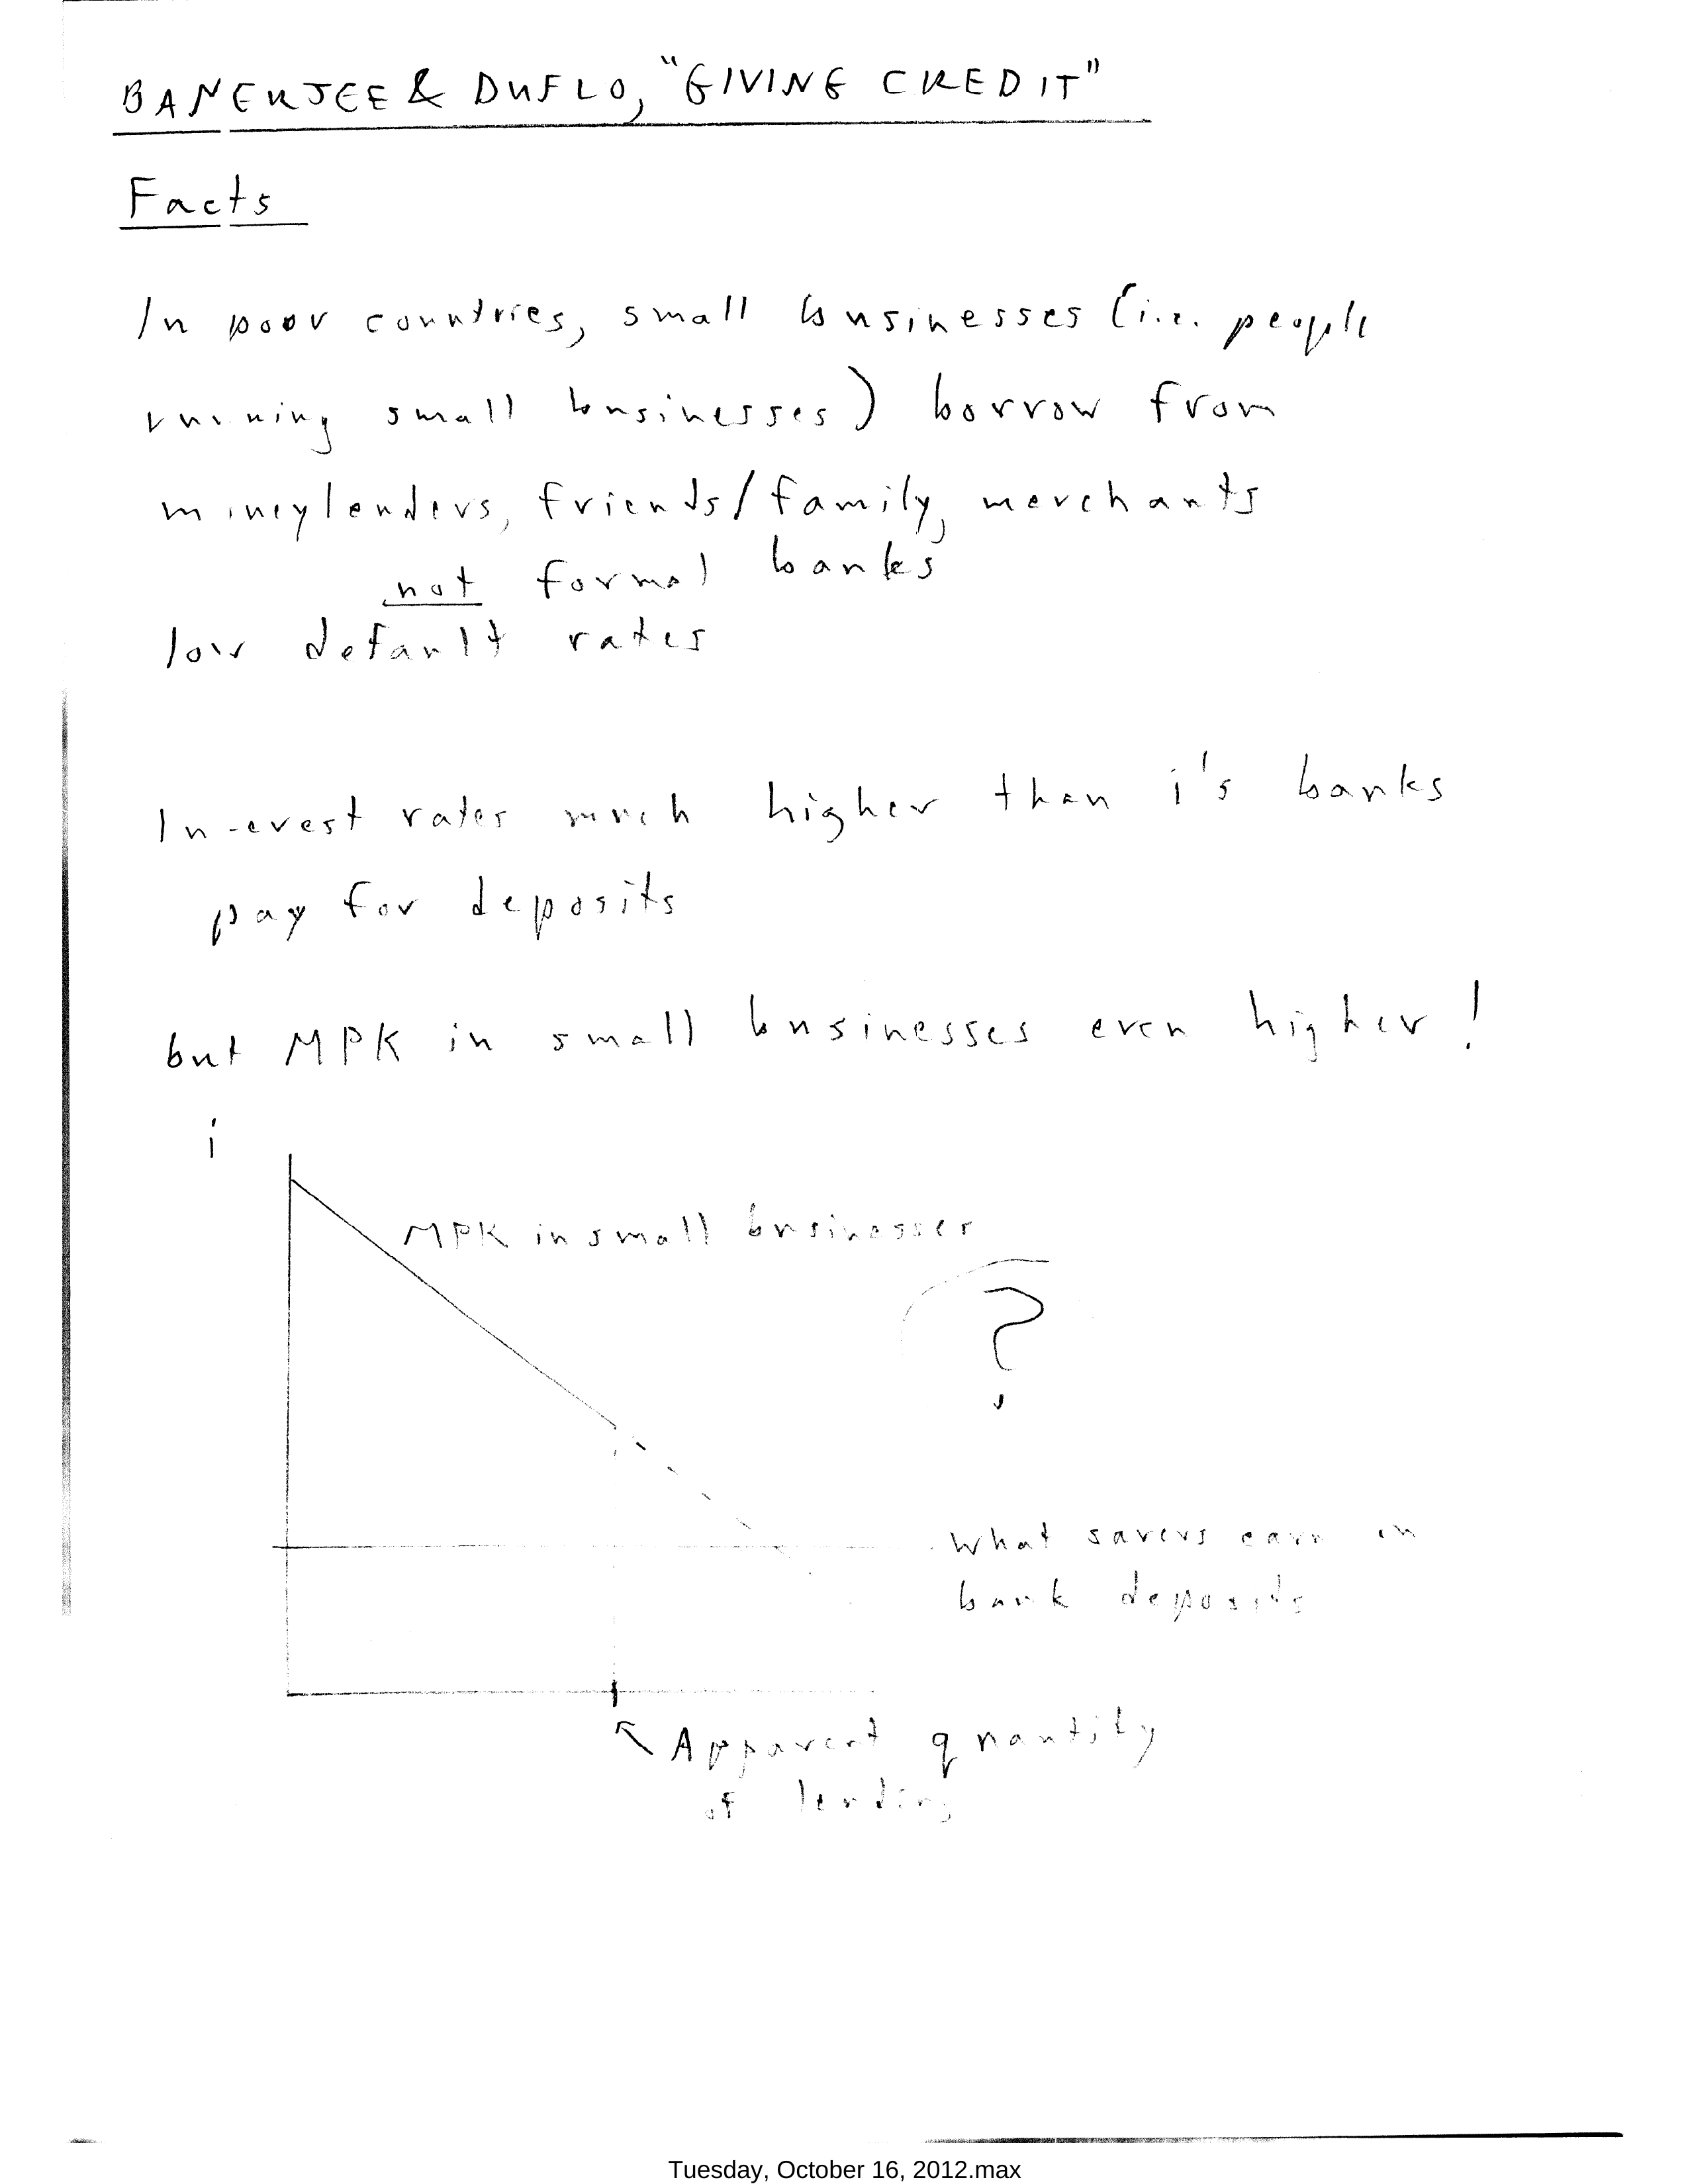 BANERJEE & DUFLO, "GIVING CREDIT"
Facts
In poor countries, small businesses (i.e. people
running small businesses) borrow from
moneylenders, friends/family, merchants
not formal banks
low default rates
Interest rates much higher than i's banks
pay for deposits
but MPK in small businesses even higher!
i
MPK in small businesses
?
What savers earn in
bank deposits
Apparent quantity
of lending
Tuesday, October 16, 2012.max